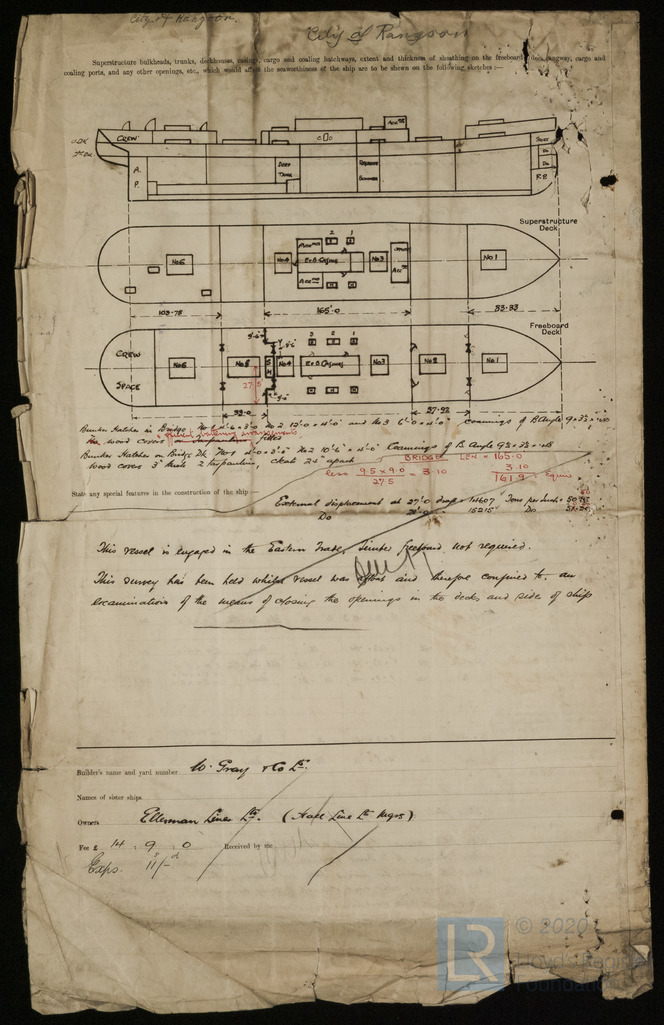 City of Rangoon.
City of Rangoon
Superstructure bulkheads, trunks, deckhouses, casings, cargo and coaling hatchways, extent and thickness of sheathing on the freeboard deck, gangway, cargo and
coaling ports, and any other openings, etc., which would affect the seaworthiness of the ship are to be shewn on the following sketches :—
CREW
A.P.
DEEP TANK
RESERVE BUNKER
F.P.
Superstructure Deck
No 5
No 4
E & B CASING
No 3
No 1
2 1
103.75
165.0
53.33
Freeboard Deck
CREW SPACE
No 6
No 5
No 4
E & B CASING
No 3
No 2
No 1
3 2 1
27.5
33.0
27.92
Bunker Hatches in Bridge No 1 4'-6" x 3'-0" No 2 12'-0" x 4'-0" and No 3 6'-0" x 4'-0" coamings of B Angle
wood covers
fitted
Bunker Hatches on Bridge Dk No 1 4'-0" x 3'-0" No 2 10'-6" x 4'-0" Coamings of B. Angle
wood covers 3" thick 2 tarpaulins, cleats 24" apart
BRIDGE LEN = 165.0
less 9.5 x 9.0 = 3.10
27.5
3.10
161.9 Equiv
State any special features in the construction of the ship —
External displacement at 27'.0 draft = 14607 Tons per Inch =
Do 28'.0" 15215 Do
This vessel is engaged in the Eastern Trade, Timber freeboard not required.
This survey has been held whilst vessel was afloat and therefore confined to an
examination of the means of closing the openings in the decks and side of ship
Builder's name and yard number W. Gray & Co Ltd.
Names of sister ships
Owners Ellerman Lines Ltd. (Hall Line Ld Mgrs)
Fee £ 14 : 9 : 0 Received by me
Exps. 11/- d
LR
© 2020
Lloyd's Register
Foundation